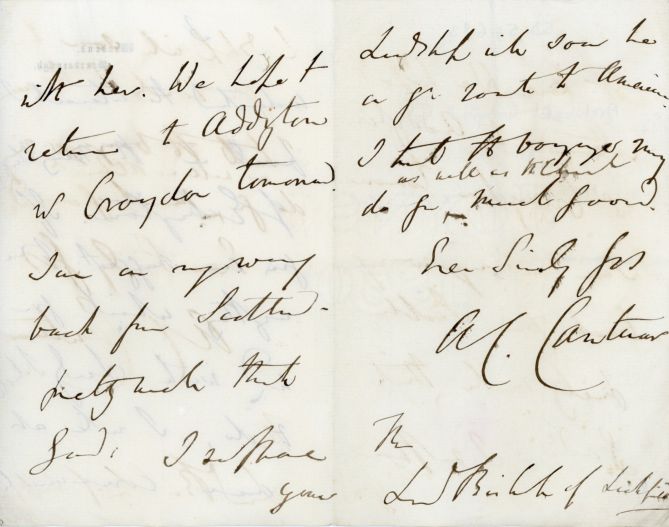 with her. We hope to
return to Addington
nr Croydon tomorrow.
I am on my way
back from Scotland –
pretty well thank
God: I suppose
your
Lordship will soon be
on yr route to America
I trust the voyage may
as well as the Church
do yr much good.
Ever Sincly Yrs
A C. Cantuar
The
Lord Bishop of Lichfield